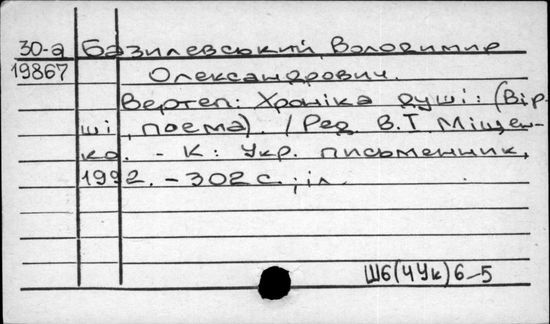 30-а Базилевський, Володимир
19867 Олександрович.
Вертеп: Хроніка душі: (Вір-
ші, поема). /Ред В.Т. Міщен-
ко. - К: Укр. письменник,
1992. - 302 с.; іл.
Ш6(4Ук)6-5